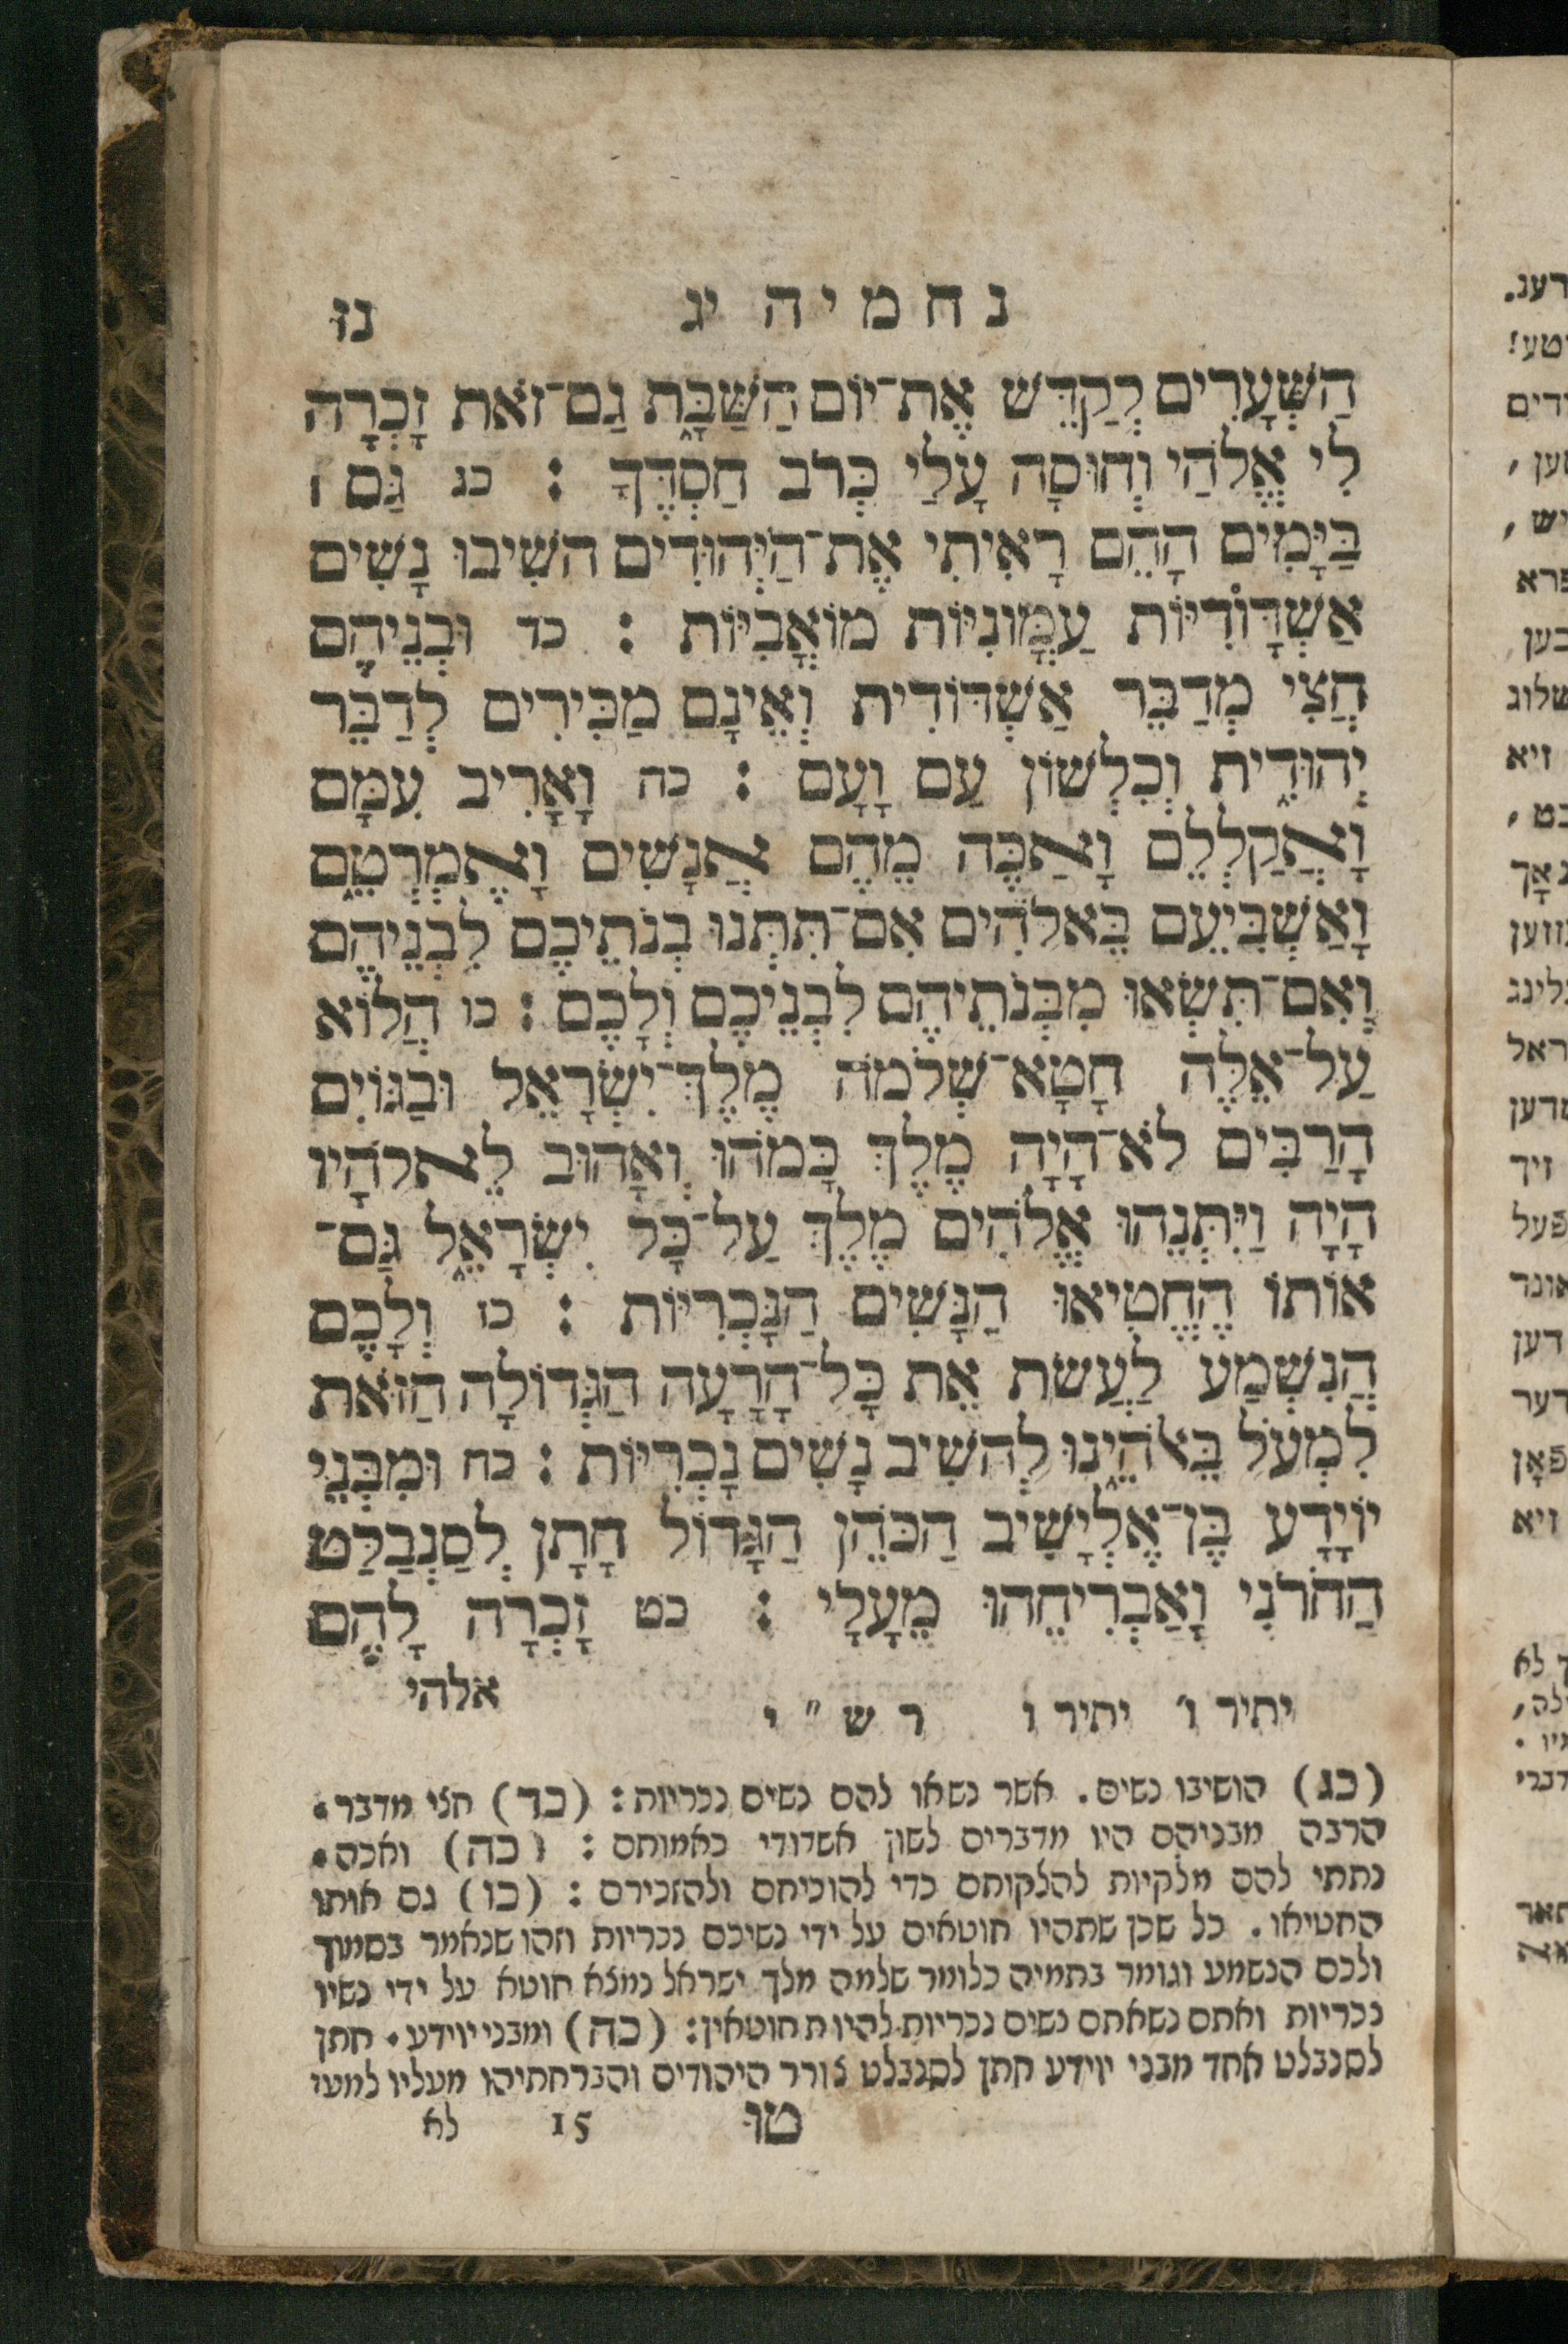 נחמיה יג נז
הַשְּׁעָרִים לְקַדֵּשׁ אֶת־יוֹם הַשַּׁבָּת גַּם־זֹאת זָכְרָה
לִּי אֱלֹהַי וְחוּסָה עָלַי כְּרֹב חַסְדֶּךָ : כג גַּם ׀
בַּיָּמִים הָהֵם רָאִיתִי אֶת־הַיְּהוּדִים הֹשִׁיבוּ נָשִׁים
אַשְׁדֳּודִיּוֹת עַמֳּונִיּוֹת מוֹאֲבִיּוֹת : כד וּבְנֵיהֶם
חֲצִי מְדַבֵּר אַשְׁדּוֹדִית וְאֵינָם מַכִּירִים לְדַבֵּר
יְהוּדִית וְכִלְשׁוֹן עַם וָעָם : כה וָאָרִיב עִמָּם
וָאֲקַלְלֵם וָאַכֶּה מֵהֶם אֲנָשִׁים וָאֶמְרְטֵם
וָאַשְׁבִּיעֵם בֵּאלֹהִים אִם־תִּתְּנוּ בְנֹתֵיכֶם לִבְנֵיהֶם
וְאִם־תִּשְׂאוּ מִבְּנֹתֵיהֶם לִבְנֵיכֶם וְלָכֶם : כו הֲלוֹא
עַל־אֵלֶּה חָטָא־שְׁלֹמֹה מֶלֶךְ־יִשְׂרָאֵל וּבַגּוֹיִם
הָרַבִּים לֹא־הָיָה מֶלֶךְ כָּמֹהוּ וְאָהוּב לֵאלֹהָיו
הָיָה וַיִּתְּנֵהוּ אֱלֹהִים מֶלֶךְ עַל־כָּל יִשְׂרָאֵל גַּם־
אוֹתוֹ הֶחֱטִיאוּ הַנָּשִׁים הַנָּכְרִיּוֹת : כז וְלָכֶם
הֲנִשְׁמַע לַעֲשֹׂת אֵת כָּל־הָרָעָה הַגְּדוֹלָה הַזֹּאת
לִמְעֹל בֵּאלֹהֵינוּ לְהֹשִׁיב נָשִׁים נָכְרִיּוֹת : כח וּמִבְּנֵי
יוֹיָדָע בֶּן־אֶלְיָשִׁיב הַכֹּהֵן הַגָּדוֹל חָתָן לְסַנְבַלַּט
הַחֹרֹנִי וָאַבְרִיחֵהוּ מֵעָלָי : כט זָכְרָה לָהֶם
אלהי
יתיר ו׳ יתיר ו רש״י
(כג) הושיבו נשים. אשר נשאו להם נשים נכריות: (כד) חצי מדבר.
הרבה מבניהם היו מדברים לשון אשדודי כאמותם: (כה) ואכה.
נתתי להם מלקיות להלקותם כדי להוכיחם ולהזכירם: (כו) גם אותו
החטיאו. כל שכן שתהיו חוטאים על ידי נשיכם נכריות וזהו שנאמר בסמוך
ולכם הנשמע וגומר בתמיה כלומר שלמה מלך ישראל נמצא חוטא על ידי נשיו
נכריות ואתם נשאתם נשים נכריות להיות חוטאין: (כח) ומבני יוידע. חתן
לסנבלט אחד מבני יוידע חתן לסנבלט צורר היהודים והברחתיהו מעליו למען
טו 15 לא